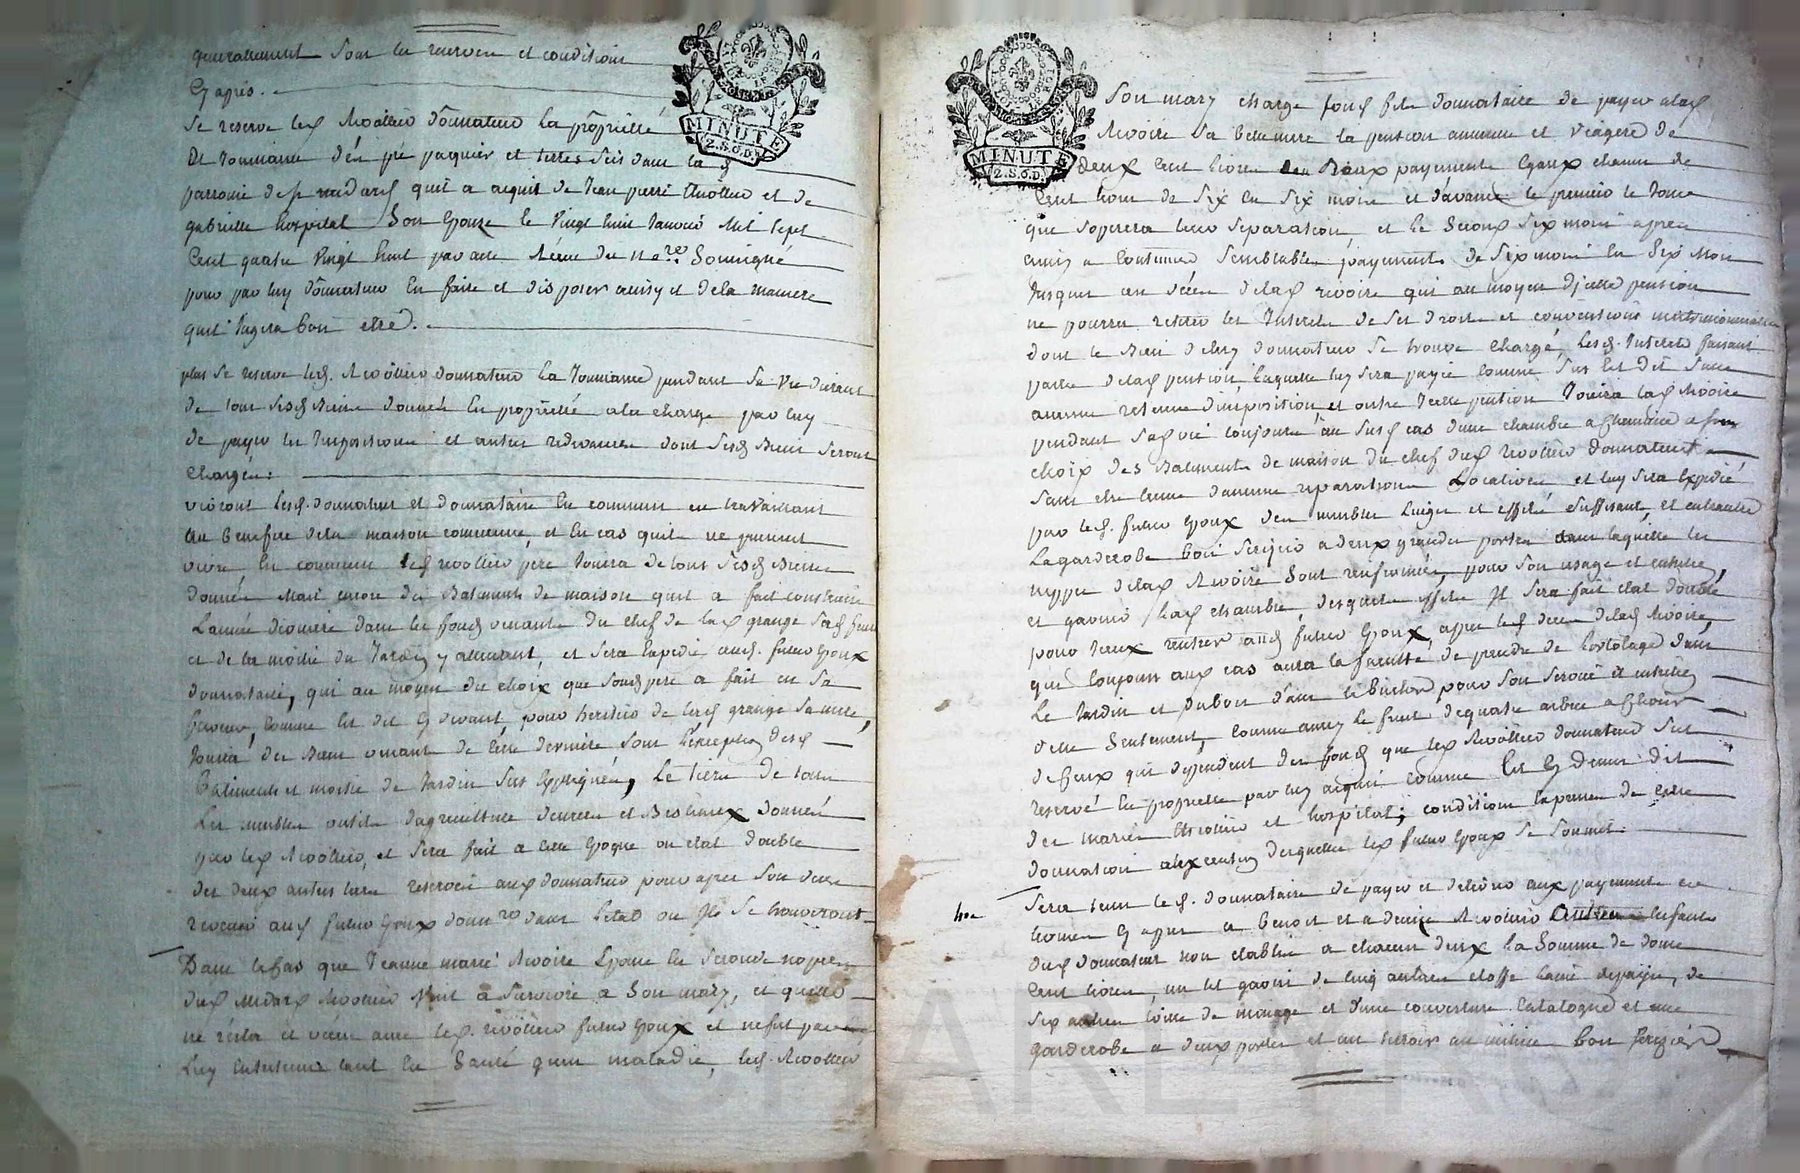 generallement sous les reserves et conditions
Cy apres.
MINUTE
2.S.6.D.
se reserve led. Rivollier donnateur la proprieté
et Jouissance d'un pré paquier et terres sis dans la d.
parroisse de st medard quil a acquis de Jean pierre et de
gabrielle hospital son Epouze le vingt huit Janvier Mil sept
Cent quatre vingt huit par acte Receu du nore. Soussigné
pour par luy donnateur En faire et disposer ainsy et de la maniere
quil Jugera bon etre.
plus se reserve led. Rivollier donnateur la Jouissance pendant sa vie durant
de tous sesd. Biens donnés En proprieté a la charge par luy
de payer les Impositions et autres redevances dont sesd. Biens seront
chargés.
vivront lesd. donnateur et donnataire En commun en travaillant
au benefice de la maison commune, et En cas quils ne pussent
vivre En commun led. rivollier pere Jouira de tous sesd. Biens
donnés Mais encore des Batiments de maison quil a fait construire
L'année derniere dans les fonds venants du chef de lad. grange sad. feue
et de la moitié du Jardin y attenant, et sera Expedié aud. futur Epoux
donnataire, qui au moyen du choix que soud. pere a fait en sa
faveur, comme Est dit Cy devant, pour heritier de lad. grange sa mere,
Jouira des Biens venants de cette derniere sous L'exception desd.
Batiments et moitié de Jardin sus Expliqués, Le tiers de tous
Les meubles outils d'agriculture denrées et Bestiaux donnés
par led. Rivollier, et sera fait a cette Epoque un etat double
des deux autres tiers reservés aux donnateur pour apres son deces
revenir aud. futur Epoux donnre. dans L'etat ou Ils se trouveront
Dans le Cas que Jeanne marie Rivoire Epouse En seconde nopces
dud. Medard Rivollier Vint a survivre a son mary, et quelle
ne resta et vecu avec led. rivollier futur Epoux et ne fut par
Luy Entretenue tant En Santé quen maladie, led. Rivollier
MINUTE
2.S.6.D.
Son mary charge soud. fils donnataire de payer a lad.
Rivoire sa bellemere la pension annuelle et viagere de
deux Cent livres en deux payements Egaux chacun de
Cent livres de six En six mois et d'avance le premier le Jour
que s'operera leur separation, et le second six mois apres
ainsy a Continuer semblables payements de six mois En six mois
Jusques au deces de lad. rivoire qui au moyen de cette pension
ne pourra retirer les Interets de ses droits et conventions matrimoniales
dont le Bien de luy donnateur se trouve chargé, lesd. Interets faisant
partie de lad. pension, Laquelle luy sera payée comme sus Est dit sans
aucune retenue d'imposition, et outre Icelle pention Jouira lad. Rivoire
pendant sad. vie toujours au susd. cas d'une chambre a cheminée a son
choix des Batiments de maison du chef dud. rivollier donnateur
sans etre tenue d'aucune reparations Locatives et luy sera Expedié
par led. futur Epoux des meubles Linges et effets suffisants, et entrautre
La garderobe bois serizier a deux grandes portes dans laquelle les
nippes de lad. Rivoire sont renfermées, pour son usage et entretien,
et garnir lad. chambre, desquels effets Il sera fait etat double
pour Iceux rentrer aud. futur Epoux, apres led. deces de lad. Rivoire,
qui toujours aux cas aura la faculté de prendre de L'ortolage dans
Le Jardin et du bois dans le bucher pour son service et entretien
d'elle seulement, comme aussy le fruit de quatre arbres a choix
de Ceux qui dependent des fonds que led. Rivollier donnateur s'est
reservé En proprieté par luy acquis comme Est Cy devant dit
des mariés et hospital; conditions expresses de cette
donnation a lexecution desquelles led. futur Epoux se soumet.
sera tenu led. donnataire de payer et delivrer aux payements et
termes Cy apres a benoit et a denize Rivollier Enfants
dud. donnateur non etablis a chacun d'eux la somme de douze
Cent livres, un lit garni de cinq autnes etoffe Laine du pays, de
six autnes toille de menage et d'une couverture Catalogne et une
garderobe a deux portes et un tirroir au milieu bois serizier